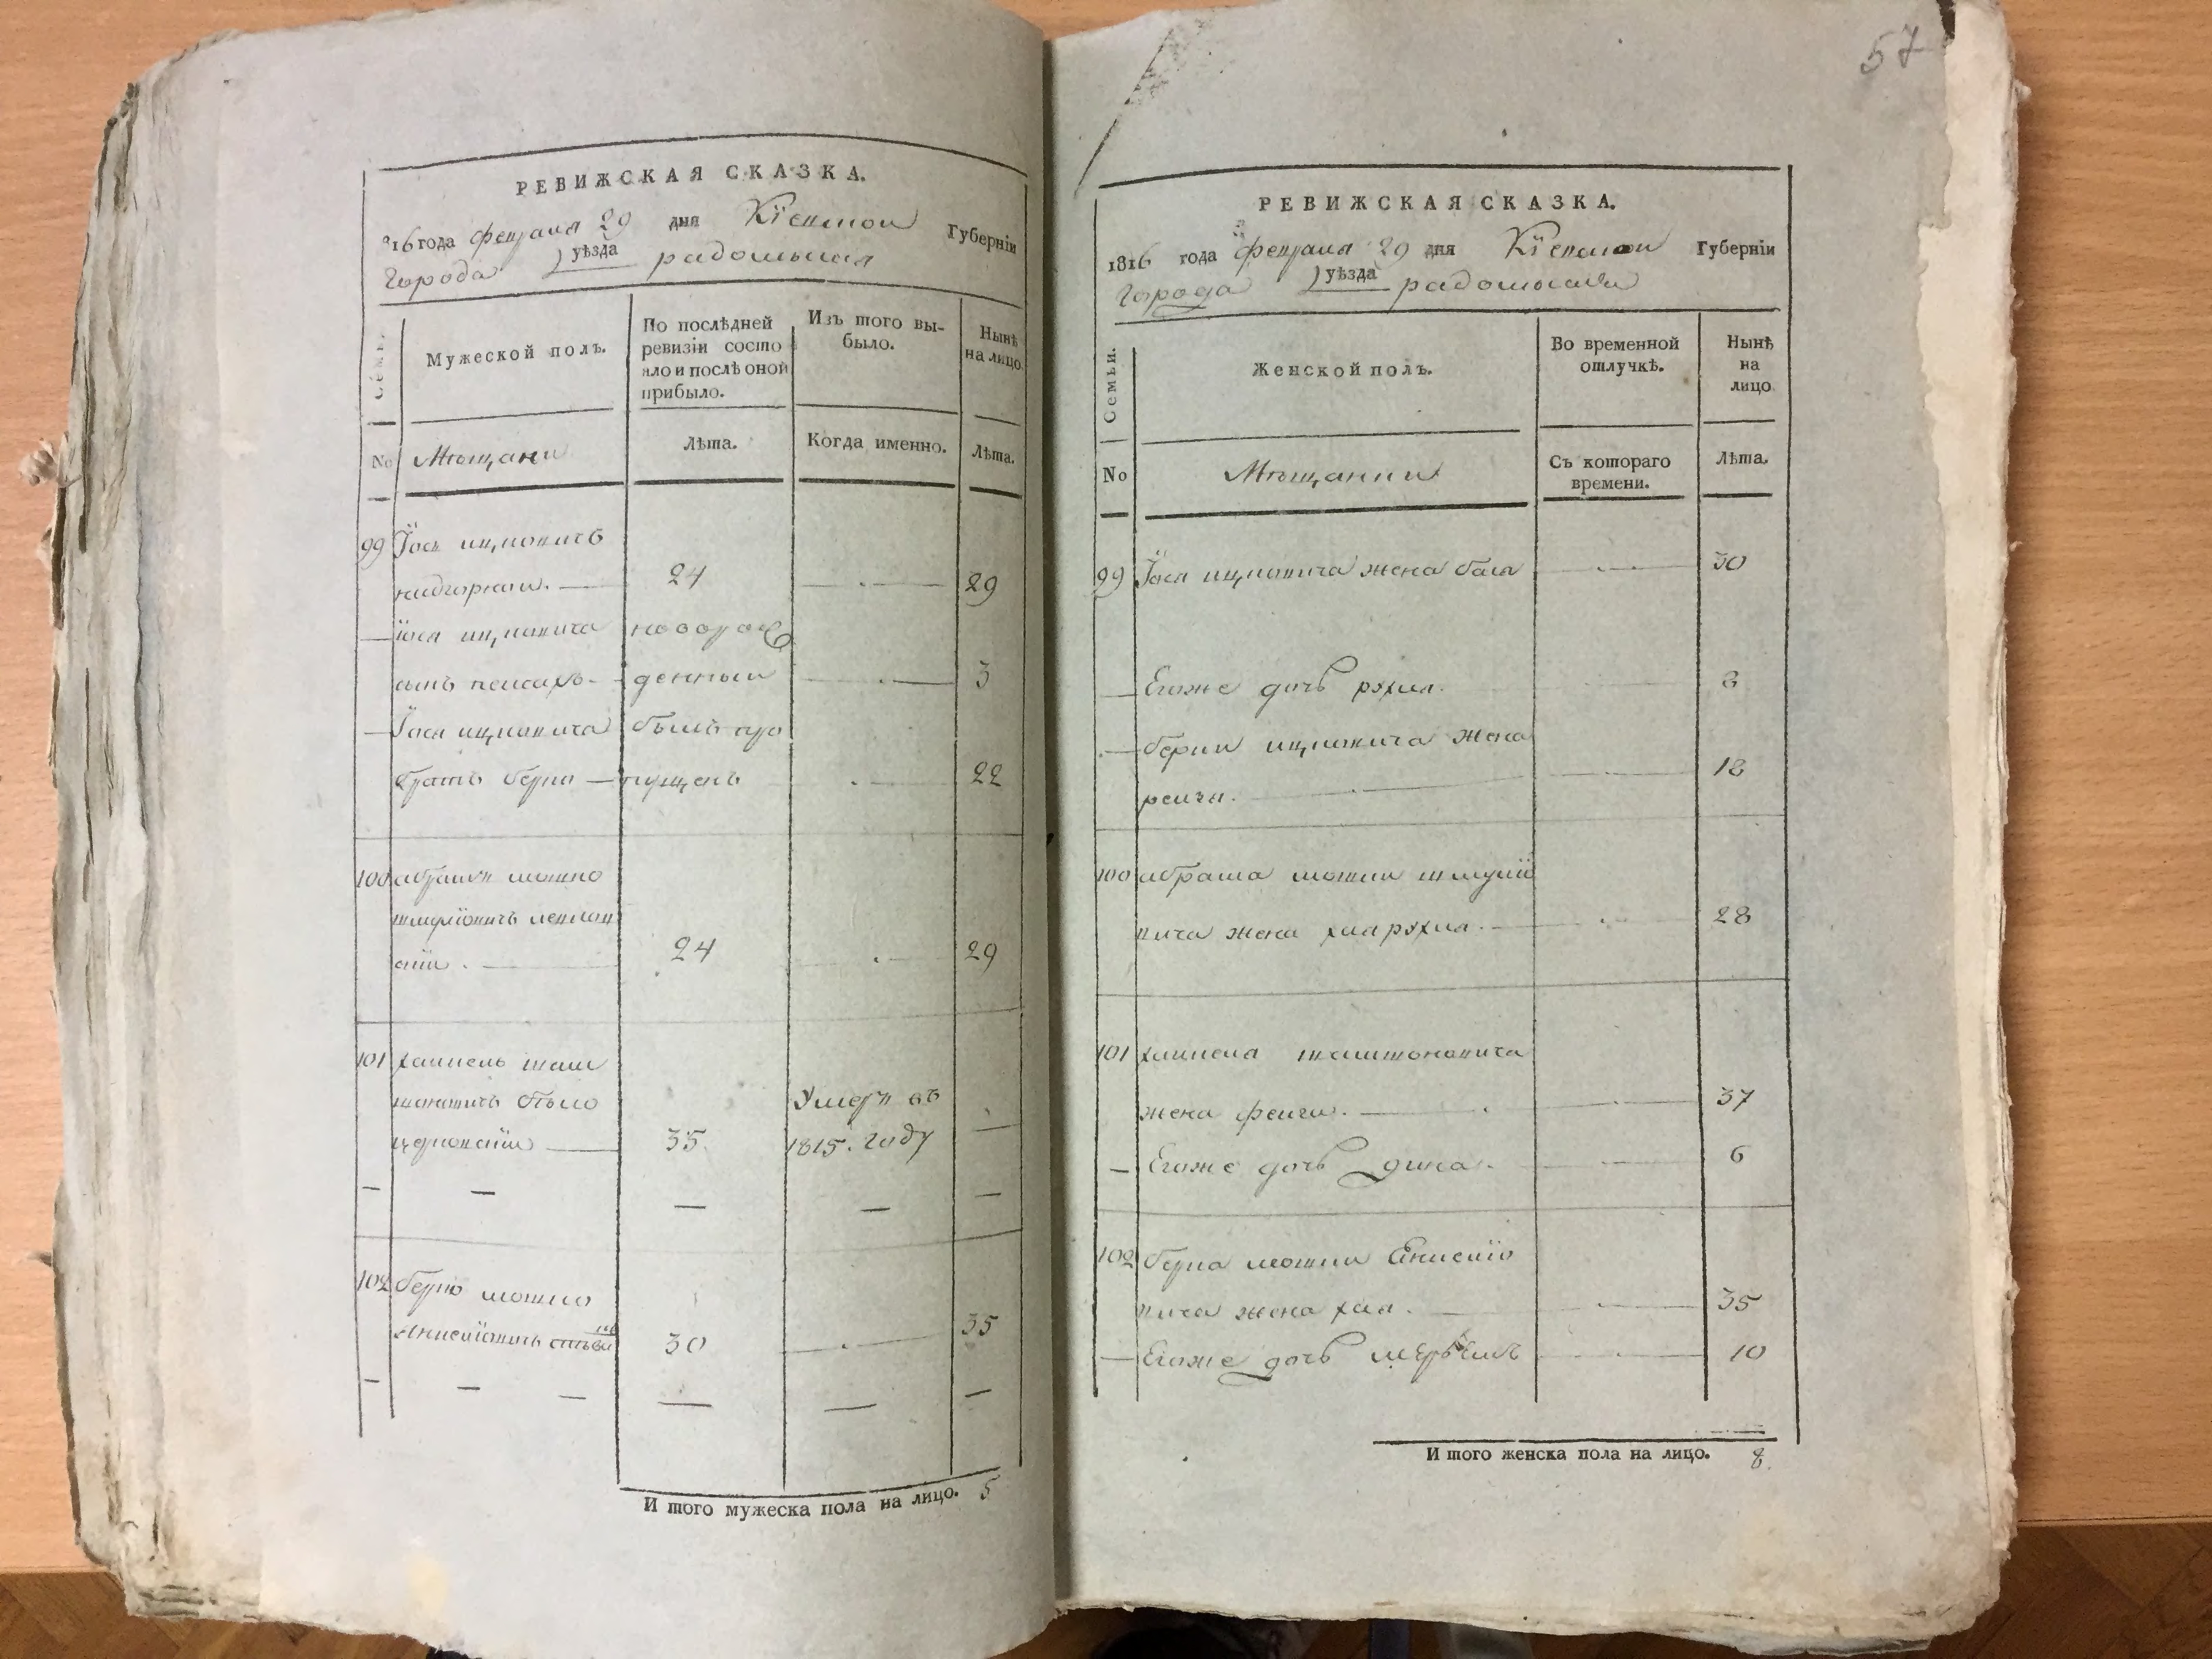 РЕВИЖСКАЯ СКАЗКА.
16 года февраля 29 дня Кіевской Губерніи
города уѣзда радомысля
Мужеской полъ.
По послѣдней ревизіи состояло и послѣ оной прибыло.
Изъ того выбыло.
Нынѣ на лицо
No Мѣщани
Лѣта.
Когда именно.
Лѣта.
99 Іось ицковичъ
24 29
іося ицковича новорож
сынъ пейсахъ денный 3
Іося ицковича былъ про
братъ берко пущенъ 22
100 абрамъ мошко
шмулїовичъ
24 29
101 хаимель
Умеръ въ
церковски 35. 1815. году
— — — — —
102 берко мошко
30 35
— — — — — —
И того мужеска пола на лицо. 5
57
РЕВИЖСКАЯ СКАЗКА.
1816 года февраля 29 дня Кіевской Губерніи
города уѣзда радомысля
Семьи.
Женской полъ.
Во временной отлучкѣ.
Нынѣ на лицо
No Мѣщанки
Съ котораго времени.
Лѣта.
99 Іося ицковича жена бася 30
Егоже дочь рухля. 8
берки ицковича жена
рейза. 18
100 абрама мошки шмулїо
вича жена хая рухля. 28
101 хаимеля
жена фейга. 37
Егоже дочь дина. 6
102 берка мошки
вича жена хая. 35
Егоже дочь 10
И того женска пола на лицо. 8.